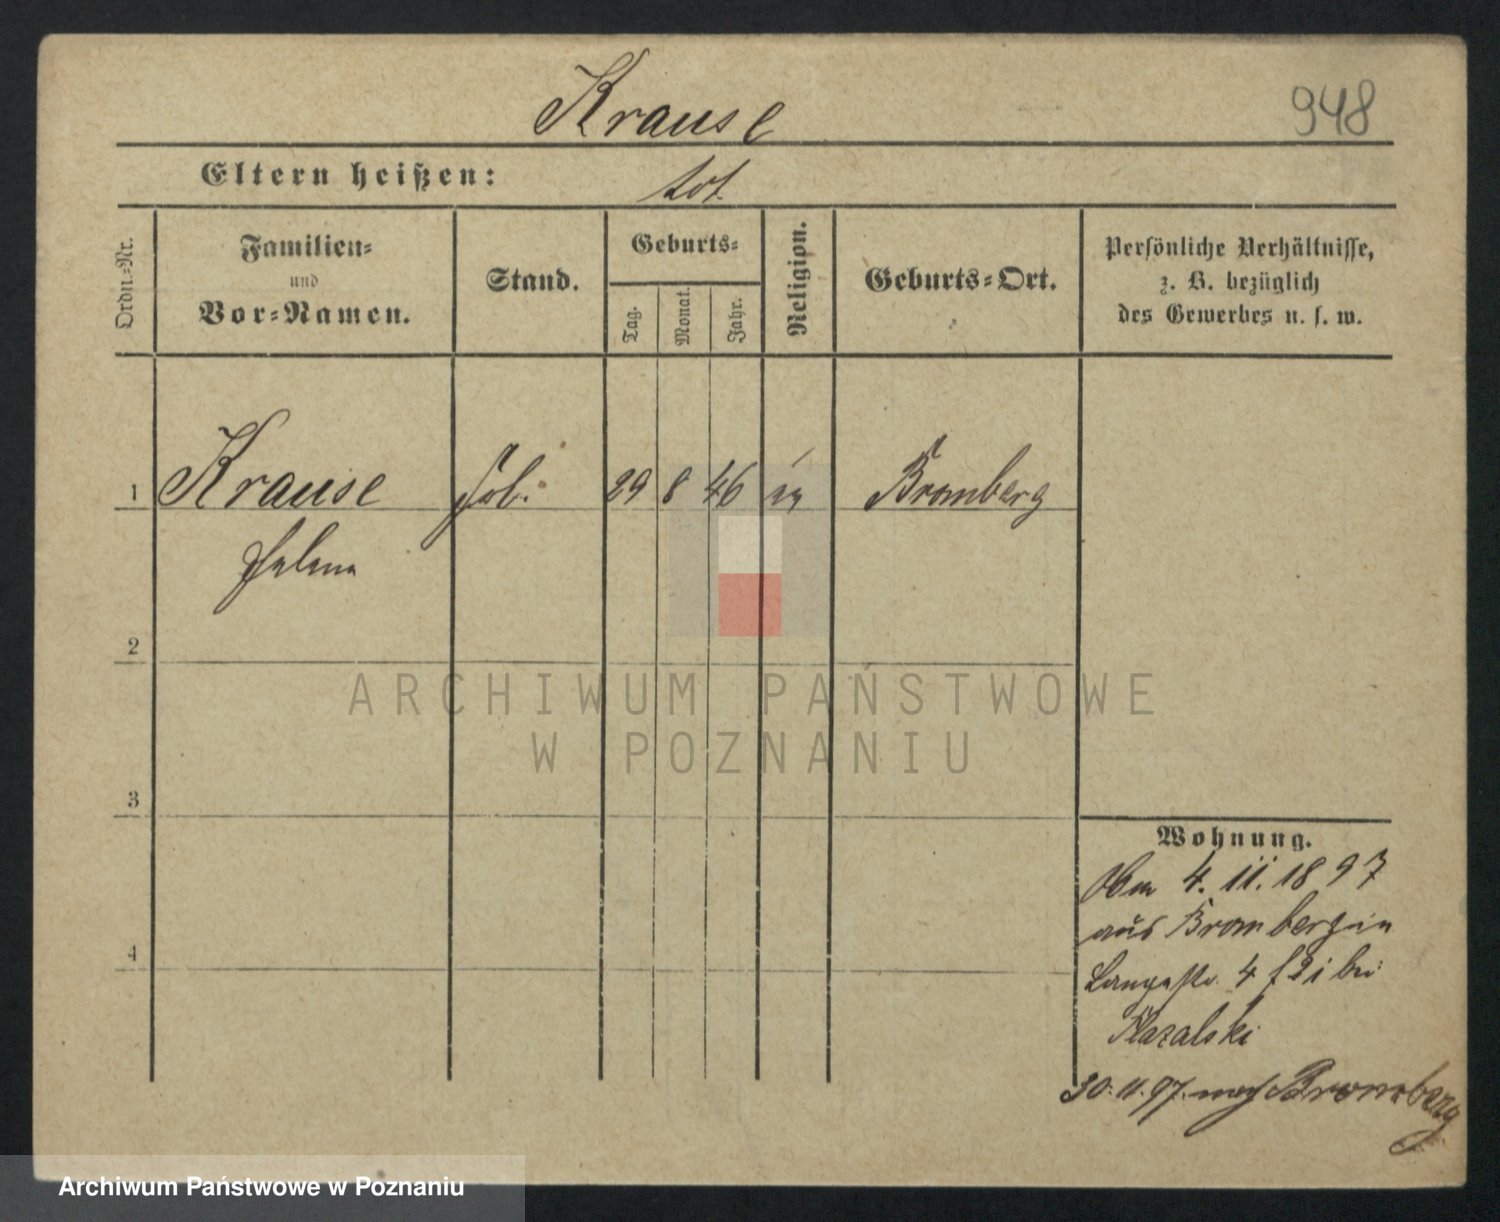 Krause
948
Eltern heißen: tot
Ordn.=Nr.
Familien= und Vor=Namen.
Stand.
Geburts=
Tag.
Monat.
Jahr.
Religion.
Geburts=Ort.
Persönliche Verhältnisse,
z. B. bezüglich
des Gewerbes u. s. w.
1 Krause 29 8 46 Bromberg
Helene
2
ARCHIWUM PAŃSTWOWE
W POZNANIU
3
Wohnung.
4. 11. 1897
aus Bromberg in
4
Langestr. 4 bei
30. 11. 97. nach Bromberg
Archiwum Państwowe w Poznaniu